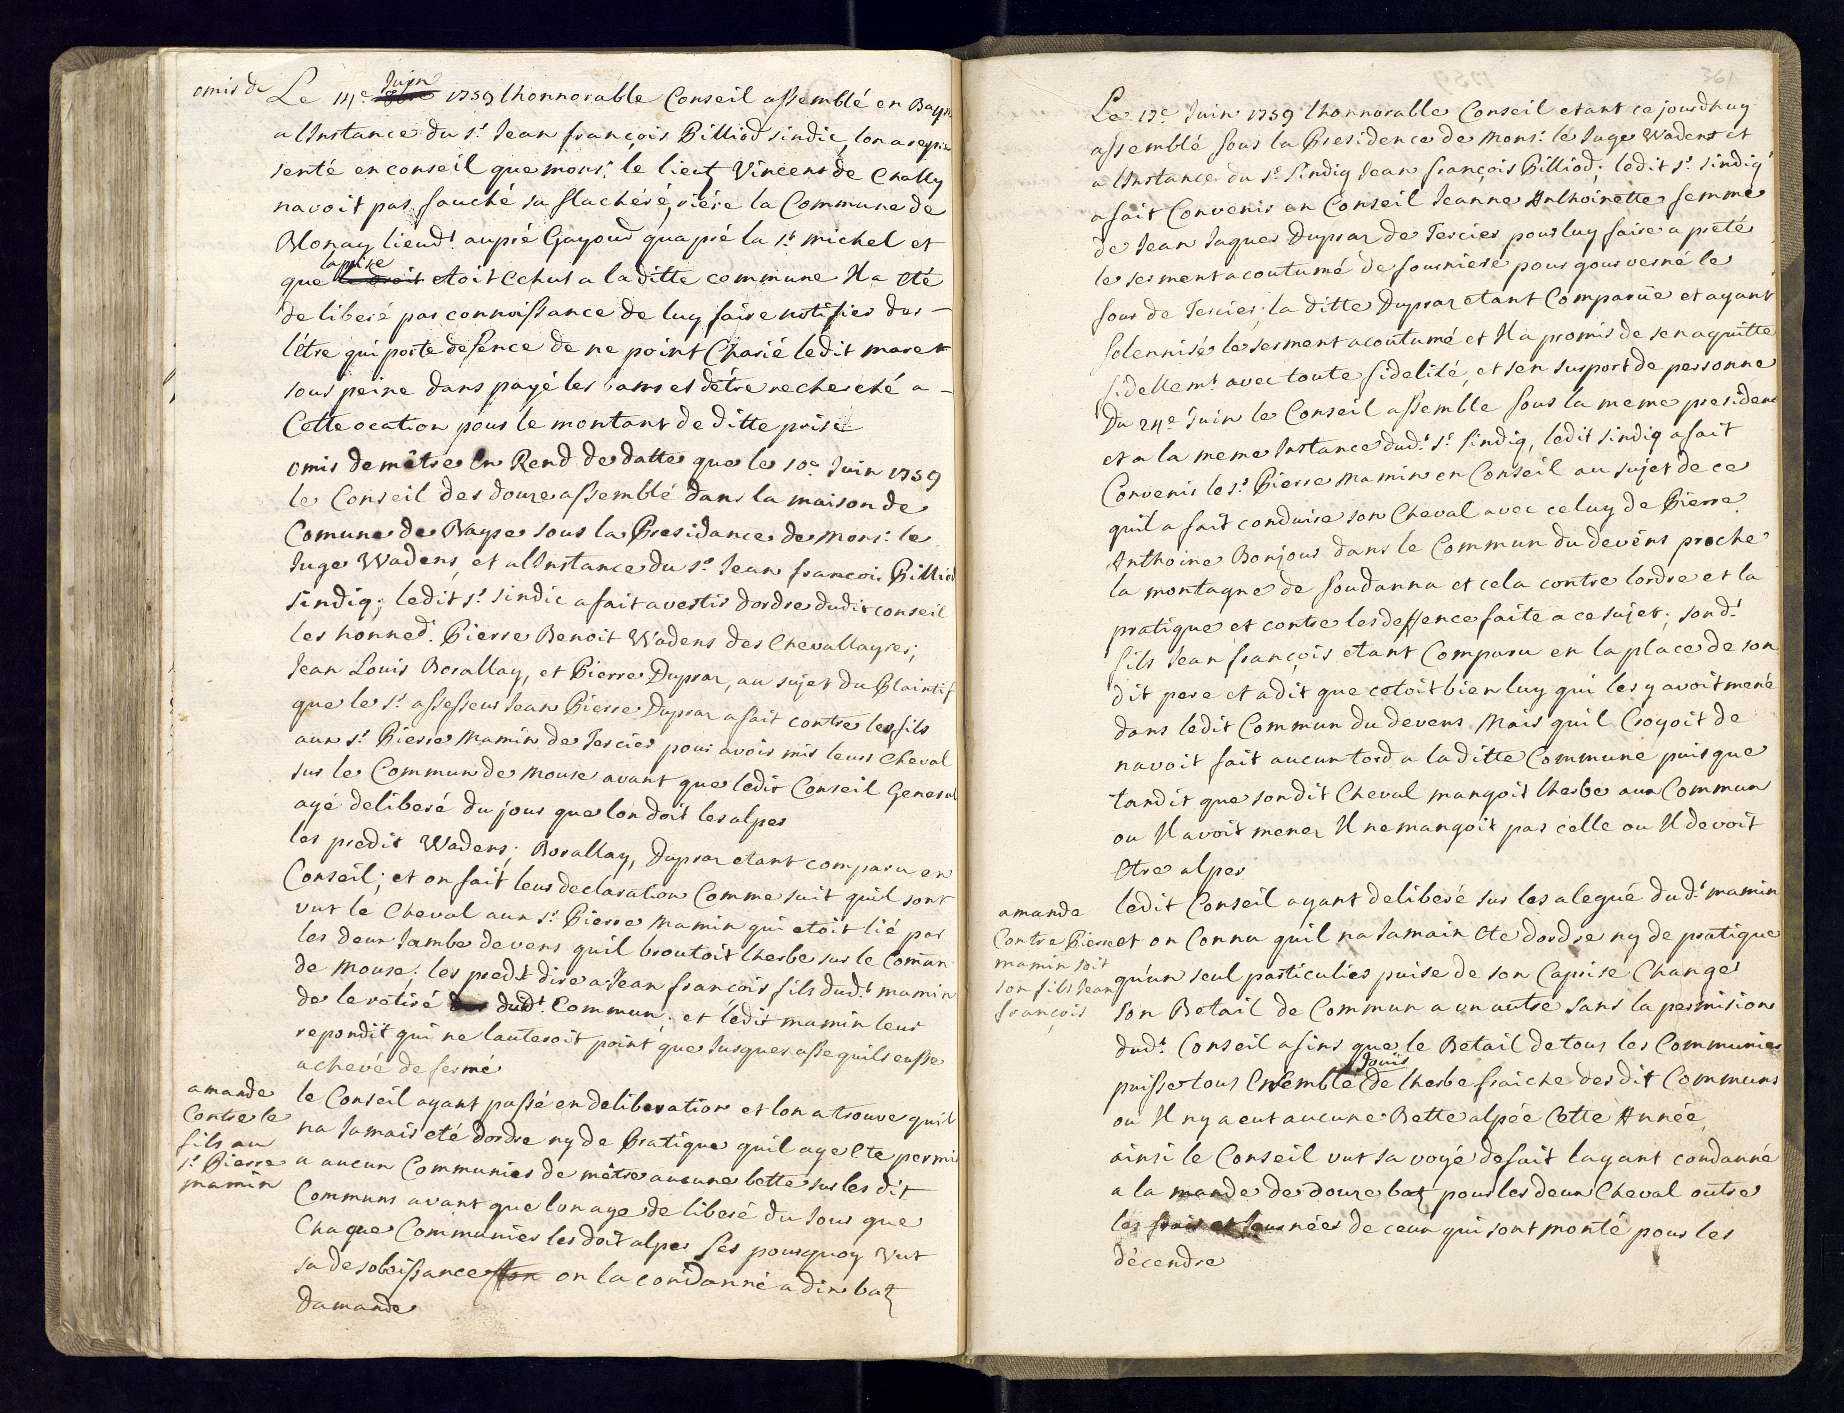 omis de
Le 14e Juin 1759 lhonnorable Conseil assemblé en Bayse
a lInstance du sr. Jean françois Pilliod sindic, lon a repré
senté en conseil que monsr. le lieut Vincent de Chally
navoit pas fauché sa flachéré, riére la Commune de
Blonay lieudt. aupré Gayoud qua pré la st. michel et
que la prise etoit Echut a laditte commune Il a été
de liberé par connoissance de luy faire notifier des –
létre qui porte defence de ne point Charié ledit maret
sous peine dans payé les bams et détre recherché a –
Cette ocation pour le montant de ditte prise
omis de métre En Rend de datte que le 10e Juin 1759
le Conseil des douze assemblé dans la maison de
Comune de Bayse sous la Presidance de Monsr. le
Juge Wadens, et a lInstance du sr. Jean francois Pilliod
sindiq; ledit sr. sindic a fait avertir dordre dudit conseil
les honned. Pierre Benoit Wadens des Chevallayres;
Jean Louis Borallay, et Pierre Dupraz, au sujet du Plaintif
que le sr. assesseur Jean Pierre Dupraz a fait contre les fils
aux sr. Pierre Mamin de Tercier pour avoir mis leurs Cheval
sur le Commun de Mouse avant que ledit Conseil General
ayé deliberé du jour que lon doit les alper
les predit Wadens; Borallay, Dupraz etant comparu en
Conseil; et on fait leur declaration Comme suit quil sont
vut le Cheval aux sr. Pierre Mamin qui etoit lié par
les deux Jambe devens quil broutoit lherbe sur le Comun
de Mouse; les predt dire a Jean francois fils dudt. mamin
de le retiré dudt. Commun; et lédit mamin leur
repondit qui ne lauteroit point que Jusques asse quils eusse
achevé de fermé
amande
Contre le
fils au
sr. Pierre
mamin
le Conseil ayant passé en deliberation et lon a trouve quil
na Jamais eté dordre ny de Pratique quil aye Ete permi
a aucun Communier de métre aucune bette sur les dit
Communs avant que lon aye de liberé du Jour que
Chaque Communier les doit alper Ses pourquoy Vut
sa desobeissance on la condanné a dix batz
damande
361
Le 17e Juin 1759 lhonnorable Conseil etant cejourdhuy
assemblé sous la Presidence de Monsr. le Juge Wadens et
a lInstance du sr. Sindiq Jean françois Pilliod; ledit sr. sindiq
a fait Convenir en Conseil Jeanne Anthoinette femme
de Jean Jaques Dupraz de Tercier pour luy faire a preté
le serment acoutumé de fourniere pour gouverné le
four de Tercier; la ditte Dupraz etant Comparüe et ayant
Solennisé le serment acoutumé et Il a promis de senaquitte
fidellemt. avec toute fidelité, et sen suport de personne
Du 24e Juin le Conseil assemble sous la meme presidence
et a la meme Instance dudt. sr. sindiq, ledit sindiq a fait
Convenir le sr. Pierre Mamin en Conseil au sujet de ce
quil a fait conduire son Cheval avec celuy de Pierre
Anthoine Bonjour dans le Commun du devens proche
la montagne de Soudanna et cela contre lordre et la
pratique et contre les deffence faite a ce sujet; sondt.
fils Jean françois etant Comparu en la place de son
dit pere et a dit que cetoit bien luy qui les y avoit mené
dans ledit Commun du devens Mais quil Croyoit de
navoit fait aucun tord a laditte Commune puisque
tandit que sondit Cheval mangoit lherbe aux Commun
ou Il avoit mener Il ne mangoit pas celle ou Il devoit
Etre alper
amande
Contre Pierre
mamin soit
son fils Jean
françois
ledit Conseil ayant deliberé sur les alegué dudt. mamin
et on Connu quil na Jamain Ete dordre ny de pratique
qu'un seul particulier puise de son Caprise Changé
son Betail de Commun a un autre sans la permision
dudt. Conseil afins que le Betail de tous les Communier
puisse tous Ensemble Jouïr de lherbe fraiche des dit Communs
ou Il ny a eut aucune Bette alpée Cette Année,
ainsi le Conseil vut sa voyé de fait layant condanné
a la mande de douze batz pour les deux Cheval outre
les frais et Journées de ceux qui sont monté pour les
décendre